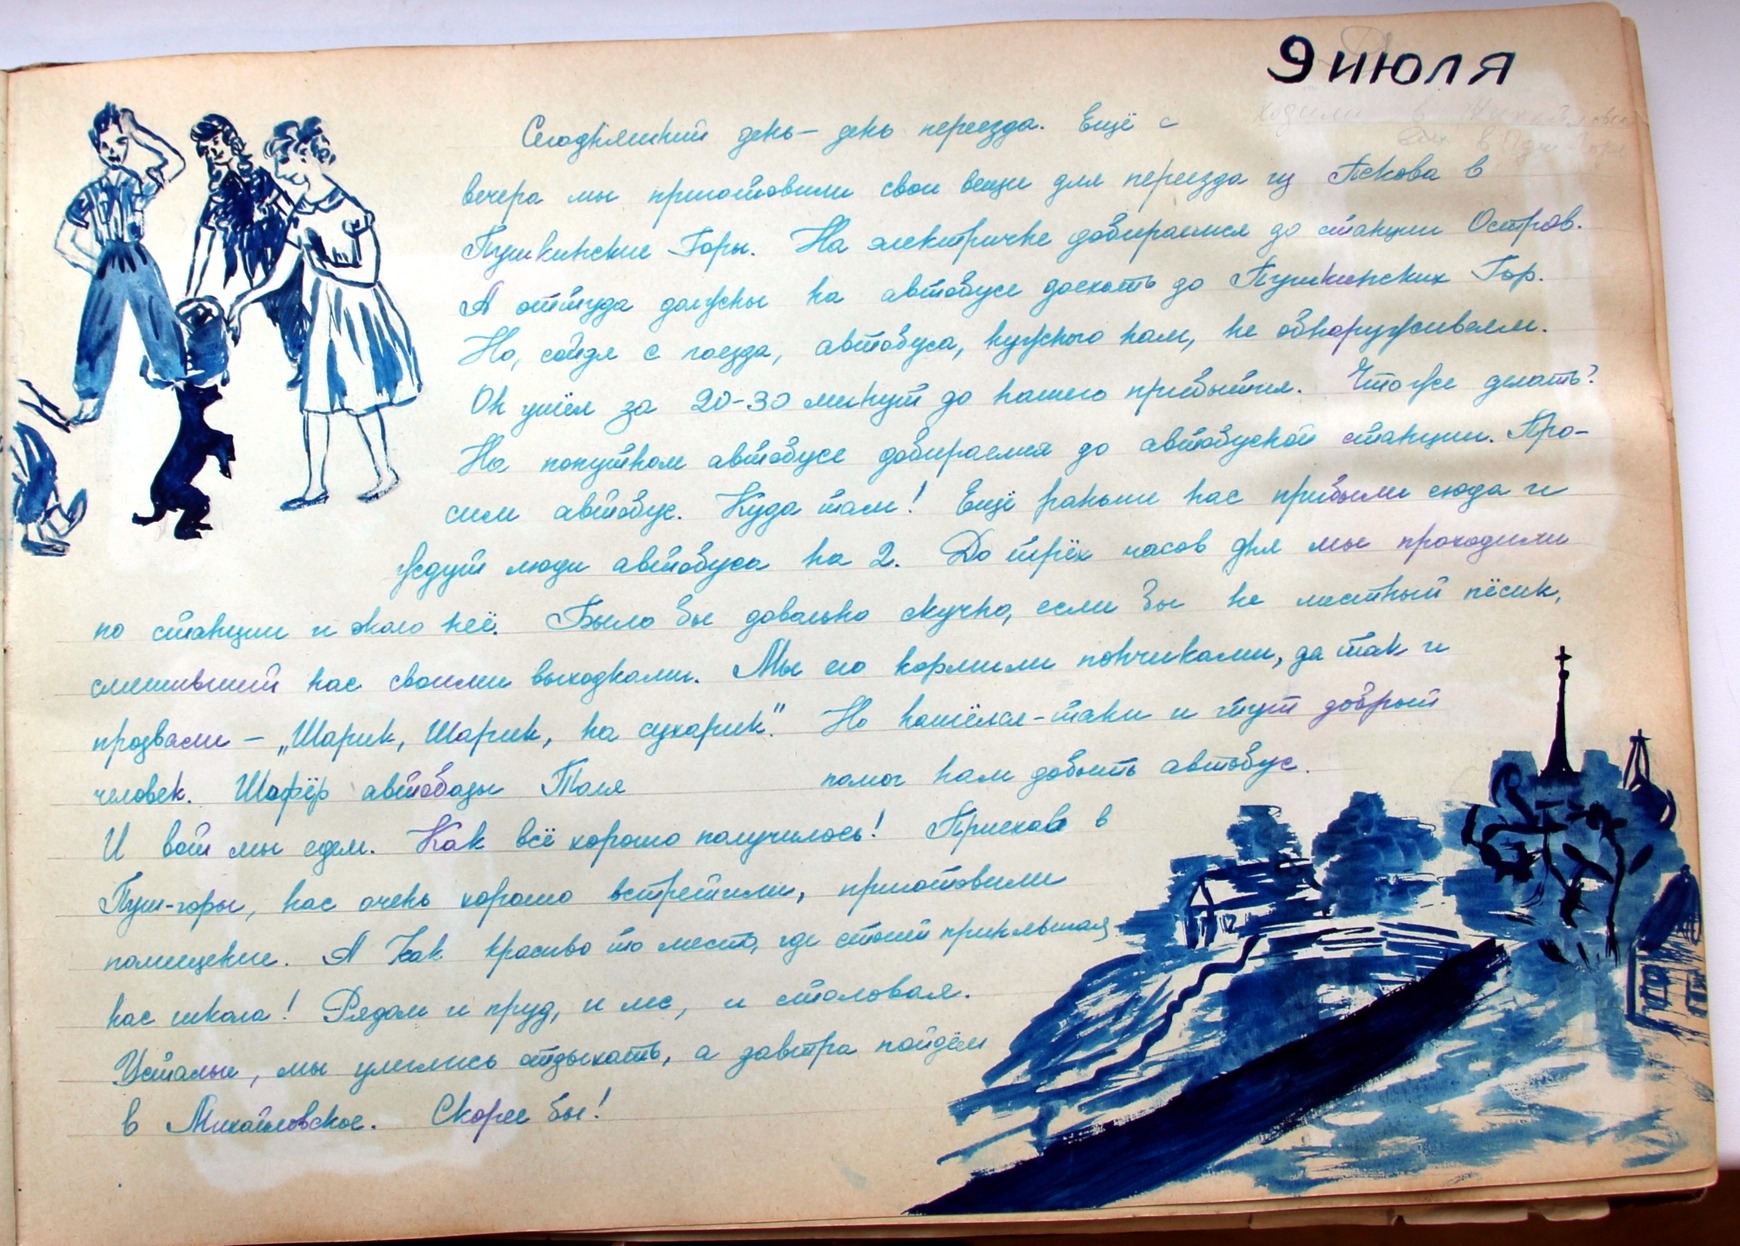 9 июля
Сегодняшний день – день переезда. Ещё с
вечера мы приготовили свои вещи для переезда из Пскова в
Пушкинские Горы. На электричке добираемся до станции Остров.
А оттуда должны на автобусе доехать до Пушкинских Гор.
Но, сойдя с поезда, автобуса, нужного нам, не обнаруживаем.
Он ушёл за 20-30 минут до нашего прибытия. Что же делать?
На попутном автобусе добираемся до автобусной станции. Про-
сим автобус. Куда там! Ещё раньше нас прибыли сюда и
ждут люди автобуса на 2. До трёх часов дня мы проходили
по станции и около неё. Было бы довольно скучно, если бы не местный пёсик,
смешивший нас своими выходками. Мы его кормили пончиками, да так и
прозвали – „Шарик, Шарик, на сухарик". Но нашёлся-таки и тут добрый
человек. Шофёр автобазы Толя помог нам добыть автобус.
И вот мы едем. Как всё хорошо получилось! Приехав в
Пуш-горы, нас очень хорошо встретили, приготовили
помещение. А как красиво то место, где стоит принявшая
нас школа! Рядом и пруд, и лес, и столовая.
Усталые, мы улеглись отдыхать, а завтра пойдём
в Михайловское. Скорее бы!